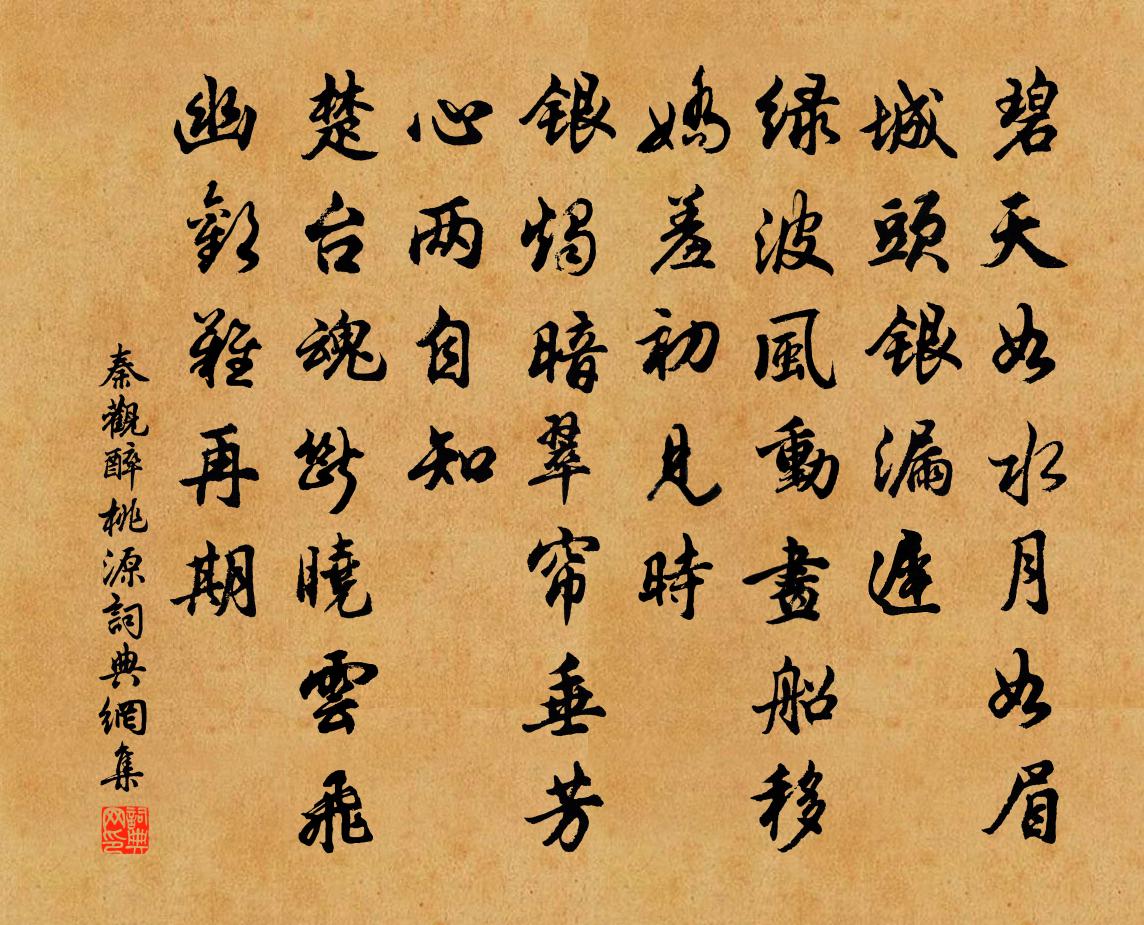 碧天如水月如眉
城頭銀漏遲
綠波風動畫船移
嬌羞初見時
銀燭暗翠帘垂芳
心两自知
楚台魂斷曉雲飛
幽歡難再期
秦觀醉桃源詞典網集
詞典网印